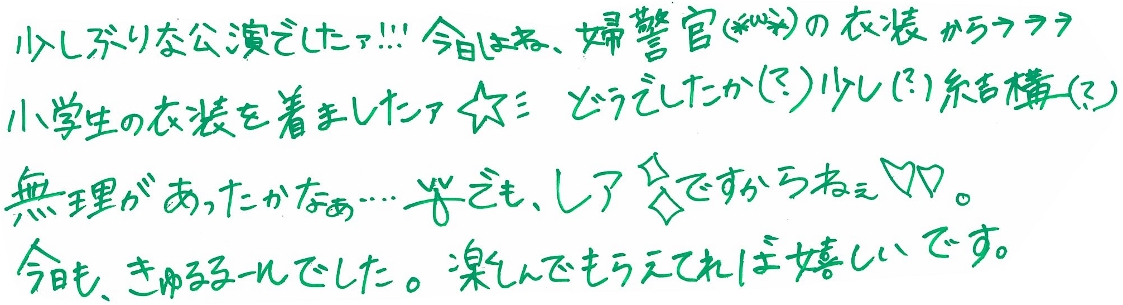 少しぶりな公演でしたァ!!! 今日はね、婦警官(*ω*)の衣装から→→→
小学生の衣装を着ましたァ☆ミ どうでしたか(?)少し(?)結構(?)
無理があったかなぁ…. でも、レア◇◇ですからねぇ♡♡。
今日も、きゅるるーんでした。楽しんでもらえてれば嬉しいです。